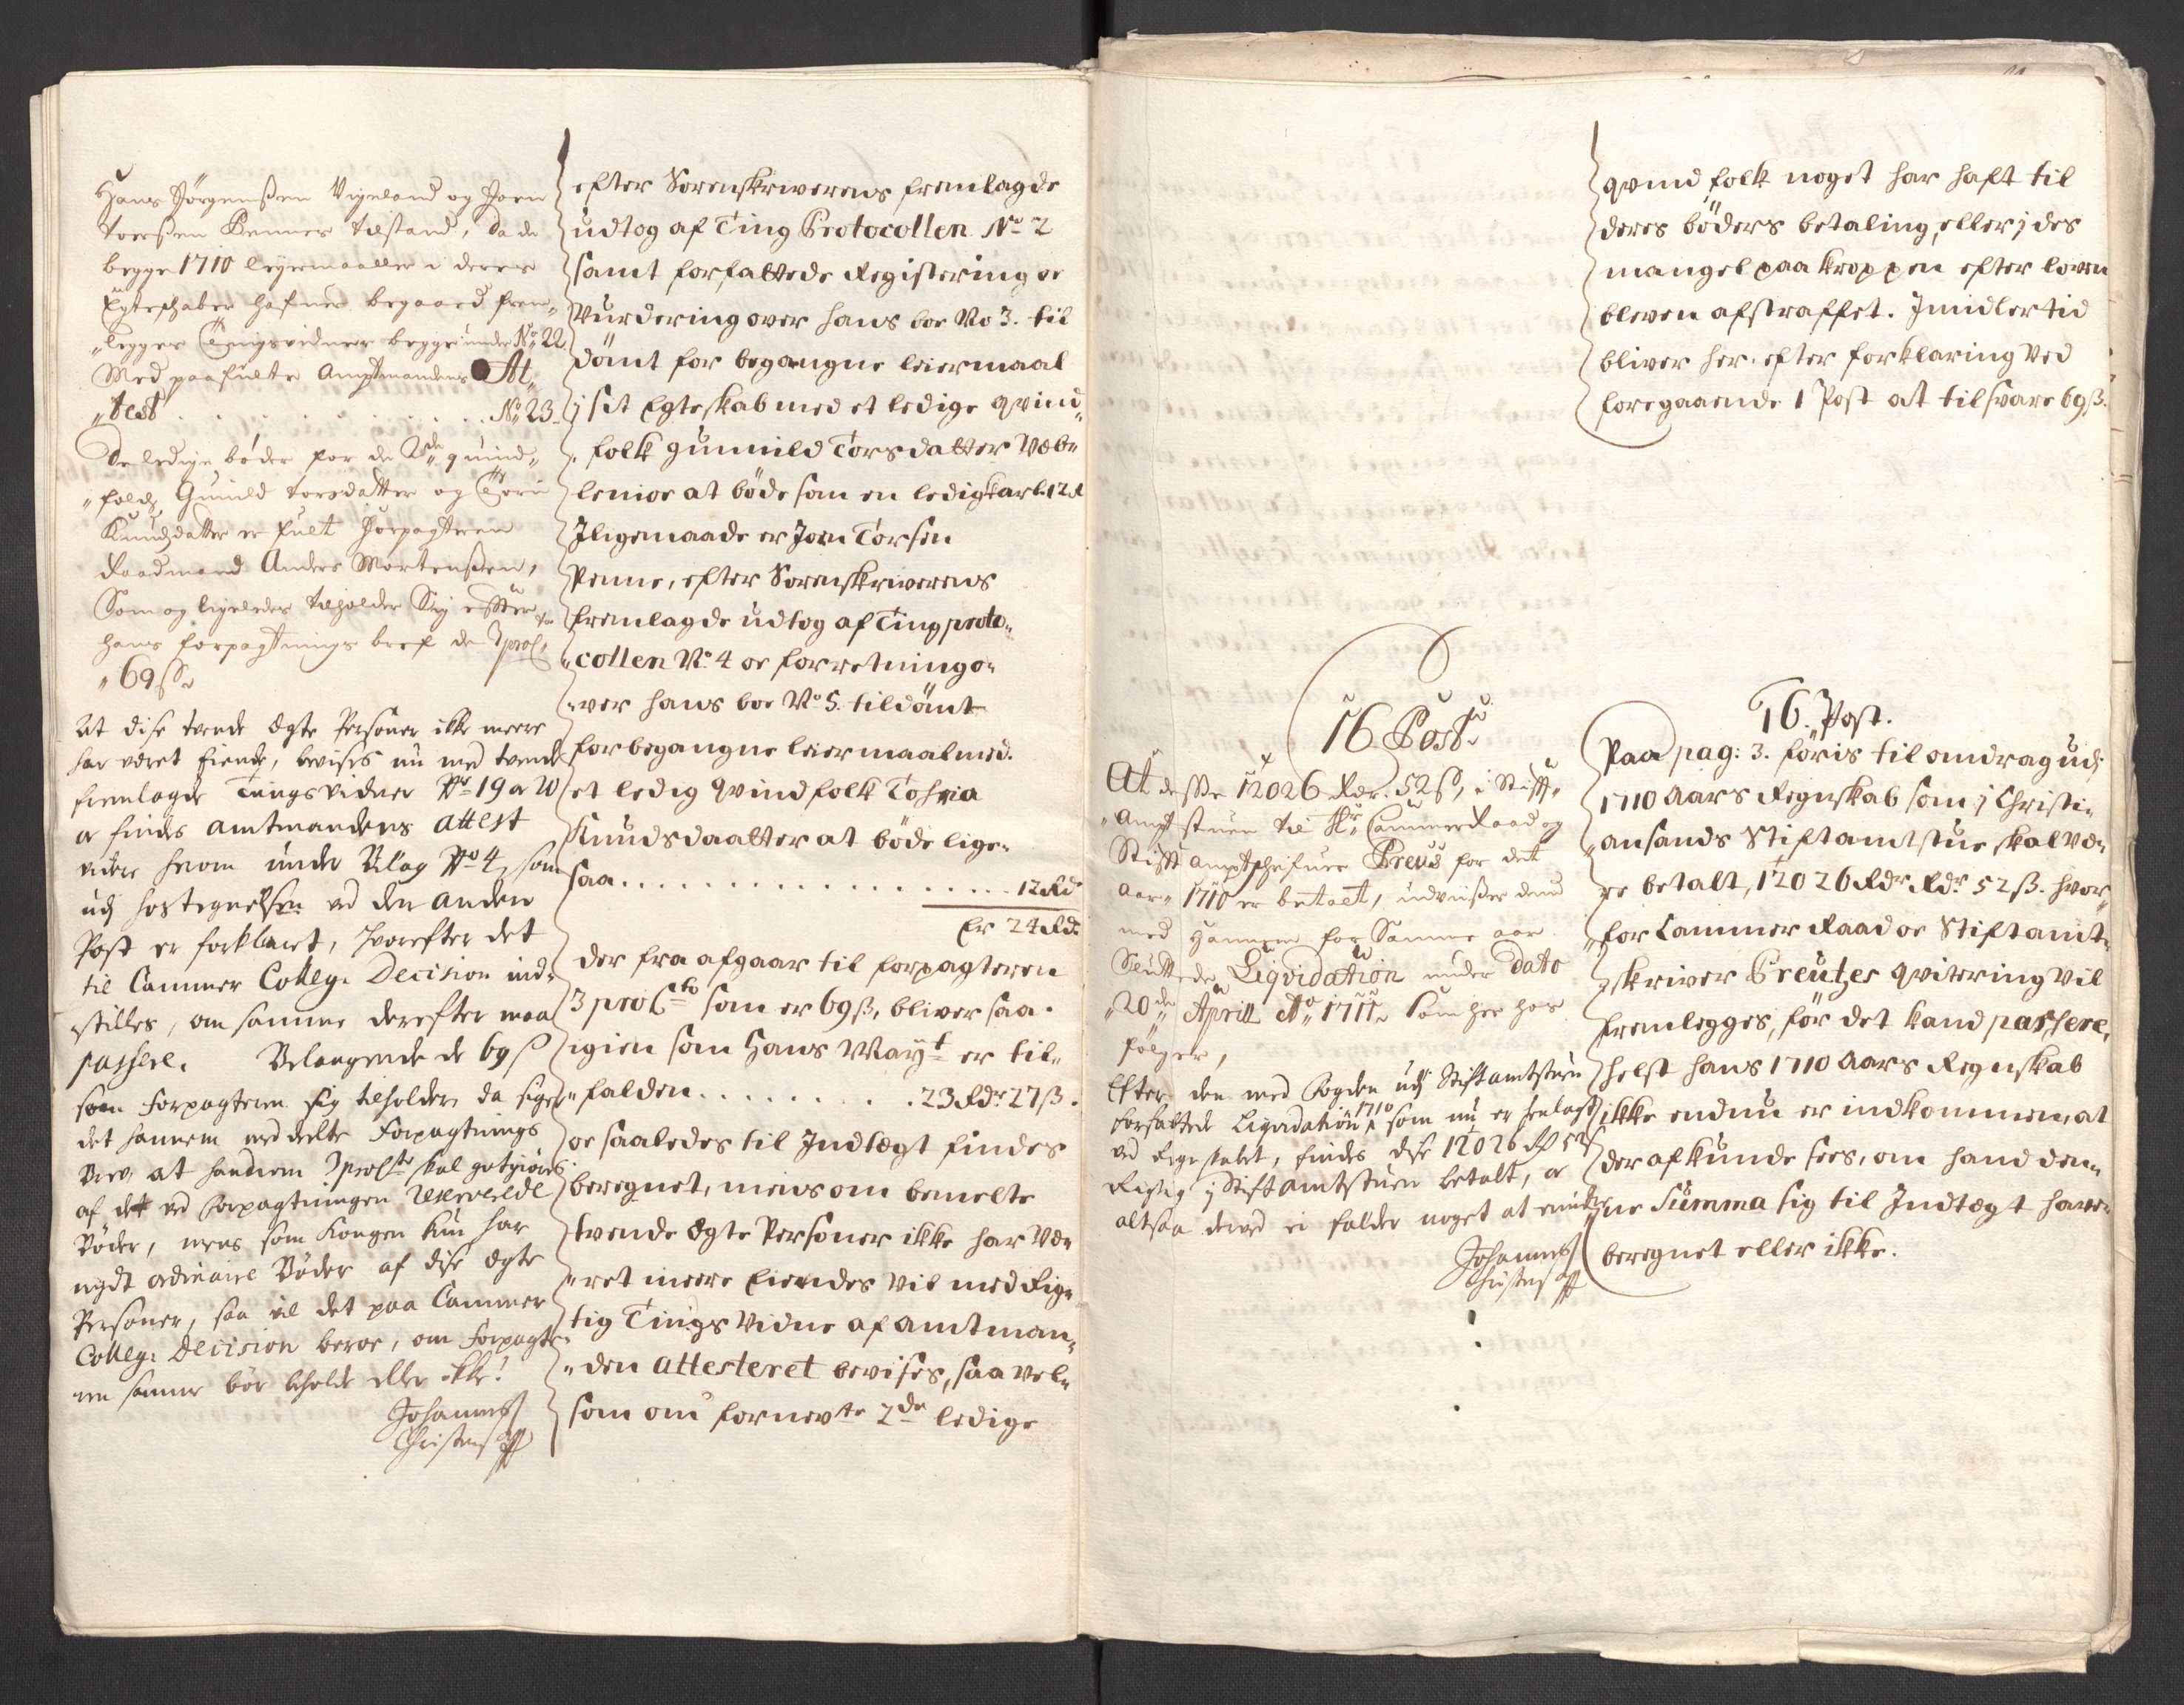 Hans Jörgensen Vigeland og Joen
Toersen Penne tilstand, da de
begge 1710 leyermaaller i deres
Egteschaber hafuer begaaed frem-
legges Tingsvidner begge under No 22
Med paafulte Amptmandens At-
test . . . . . . . . . No 23
De ledige böder for de 2de quind-
folch Gunild torsdatter og Thore
Knudsdatter er fult forpagteren
Raadmand Anders Mortensen,
Som og ligeledes tilholder Sig effter
hans forpagtnings bref de 3 proCto
69 ß
At dise tvende Egte Personer ikke meere
har været eiende, bevises nu med tvende
fremlagde Tingsvidner No 19 a 20
og findes amtmandens attest
videre herom under Bilag No 4, som
udj hostegnelsen ved den anden
Post er forklaret, hvorefter det
til Cammer Colleg. Decision ind-
stilles, om samme derefter maa
passere. Belangende de 69 ß
som Forpagteren sig tilholder da siger
det hannem meddeelte Forpagtnings
Brev, at hannem 3 proCto skal godtgiöres
af de ved Forpagtningen reserverede
Böder, mens som Kongen kun har
nydt ordinaire Böder af dise Egte
Personer, saa vil det paa Cammer
Colleg. Decision beroe, om Forpagte-
ren samme bör beholde eller ikke!
Johannes
Christensen
efter Sorenskriverens fremlagde
udtog af Ting Protocollen No 2
samt forfattede Registering oc
Vurdering over hans boe No 3. til
dömt for begangne leiermaal
j sit Egteskab med et ledige qvind-
folk gunnild Torsdatter Væb-
lenior at böde som en ledig karl 12 R
Jligemaade er Joen Torsen
Penne, efter Sorenskriverens
fremlagde udtog af Ting proto-
collen No 4 oc forretning o-
ver hans boe No 5. tildömt
for begangne leiermaal med.
et ledig qvindfolk Tohria
Knudsdaatter at böde lige-
saa . . . . . . . . . 12 Rdr
Er 24 Rdr
der fra afgaar til forpagteren
3 proCto som er 69 ß, bliver saa
igien som Hans Mayt er til-
falden . . . . . . . . . 23 Rdr 27 ß.
oc saaledes til Indtægt findes
beregnet, mens om bemelte
tvende Egte Personer ikke har Væ-
ret meere Eiendes vil med Rig-
tig Tings Vidne af amtman-
den attesteret bevises, saa vel-
som om fornevte 2de ledige
qvindfolk noget har haft til
deres böders betaling, eller j des
mangel paa kroppen efter loven
bleven afstraffet. Jmidlertid
bliver her efter forklaring Ved
foregaaende 1 Post at tilsvare 69 ß.
16 Post
At desse 12026 Rdr. 52 ß, i Stifft-
Ampt stuen til Hr Cammer Raad og
Stifft amptschrifuer Preus for det
Aar 1710 er betalt, udviiser dend
med Hannem for Samme aar
Sluttede Liqvidation under Dato
20de Aprill Ao 1711 Som her hos
fölger,
Efter den med Fogden udj Stiftamtstuen
forfattede Liqvidation 1710 som nu er henlagt
ved Regnskabet, findes dise 12026 Rd 52 ß
Rigtig j Stiftamtstuen betalt, oc
altsaa derved ei falder noget at erindre
Johannes
Christensen
16. Post.
Paa pag: 3. föris til omdrag udj
1710 Aars Regnskab som j Christi-
ansands Stiftamtstue skal væ-
re betalt, 12026 Rdr Rdr 52 ß. hvor-
for Cammer Raad oc Stiftamt-
skriver Preutzes qvitering vil
fremlegges, för det kand passere,
helst hans 1710 Aars Regnskab
ikke endnu er indkommen, at
der af kunde sees, om hand den-
ne Summa sig til Indtægt have
beregnet eller ikke.